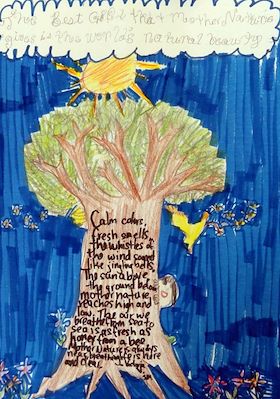 The Best Gift that Mother Nature
gives is the world's natural beauty
Calm colors,
fresh smells,
the whistles of
the wind sound
like jingling bells.
The sun above
the ground below
mother nature,
reaches high and
low. The air we
breathe from sea to
sea is as fresh as
honey from a bee
Mother Nature is always
near, breath of life is here
and clear.